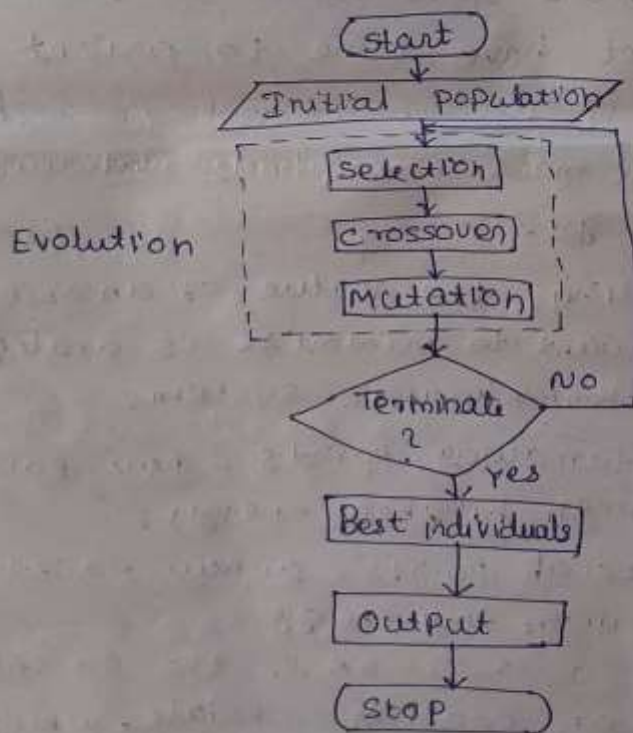 Start
Initial population
Selection
Crossover
Evolution
Mutation
Terminate
?
No
Yes
Best individuals
Output
Stop